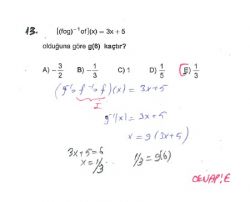 13. [(fog)⁻¹of](x) = 3x + 5
olduğuna göre g(6) kaçtır?
A) -3/2 B) -1/3 C) 1 D) 1/5 E) 1/3
(g⁻¹o f⁻¹o f)(x) = 3x+5
I
g⁻¹(x) = 3x+5
x = g(3x+5)
3x+5=6
x = 1/3
1/3 = g(6)
CEVAP:E